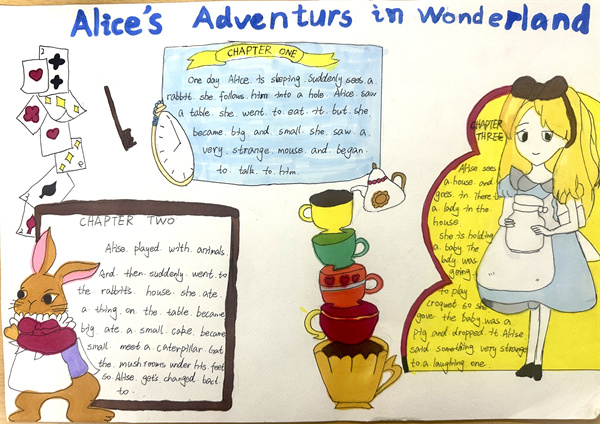 Alice's Adventurs in Wonderland
CHAPTER ONE
One day Alice is slepping. Suddenly sees a
rabbit. she follows him into a hole. Alice saw
a table. she went to eat it but she
became big and small. she saw a
very strange mouse and began
to talk to him.
CHAPTER TWO
Alise played with animals.
And then suddenly went to
the rabbit's house she ate
a thing on the table became
big ate a small cake became
small meet a caterpillar that
the mushrooms under his feet
so Alise get's changed back
to.
CHAPTER
THREE
Alise sees
a house and
goes in There is
a lady in the
house
she is holding
a baby The
lady was
going
to play
croquet so she
gave the baby was a
pig and dropped it Alise
said something very strange
to a laughing one